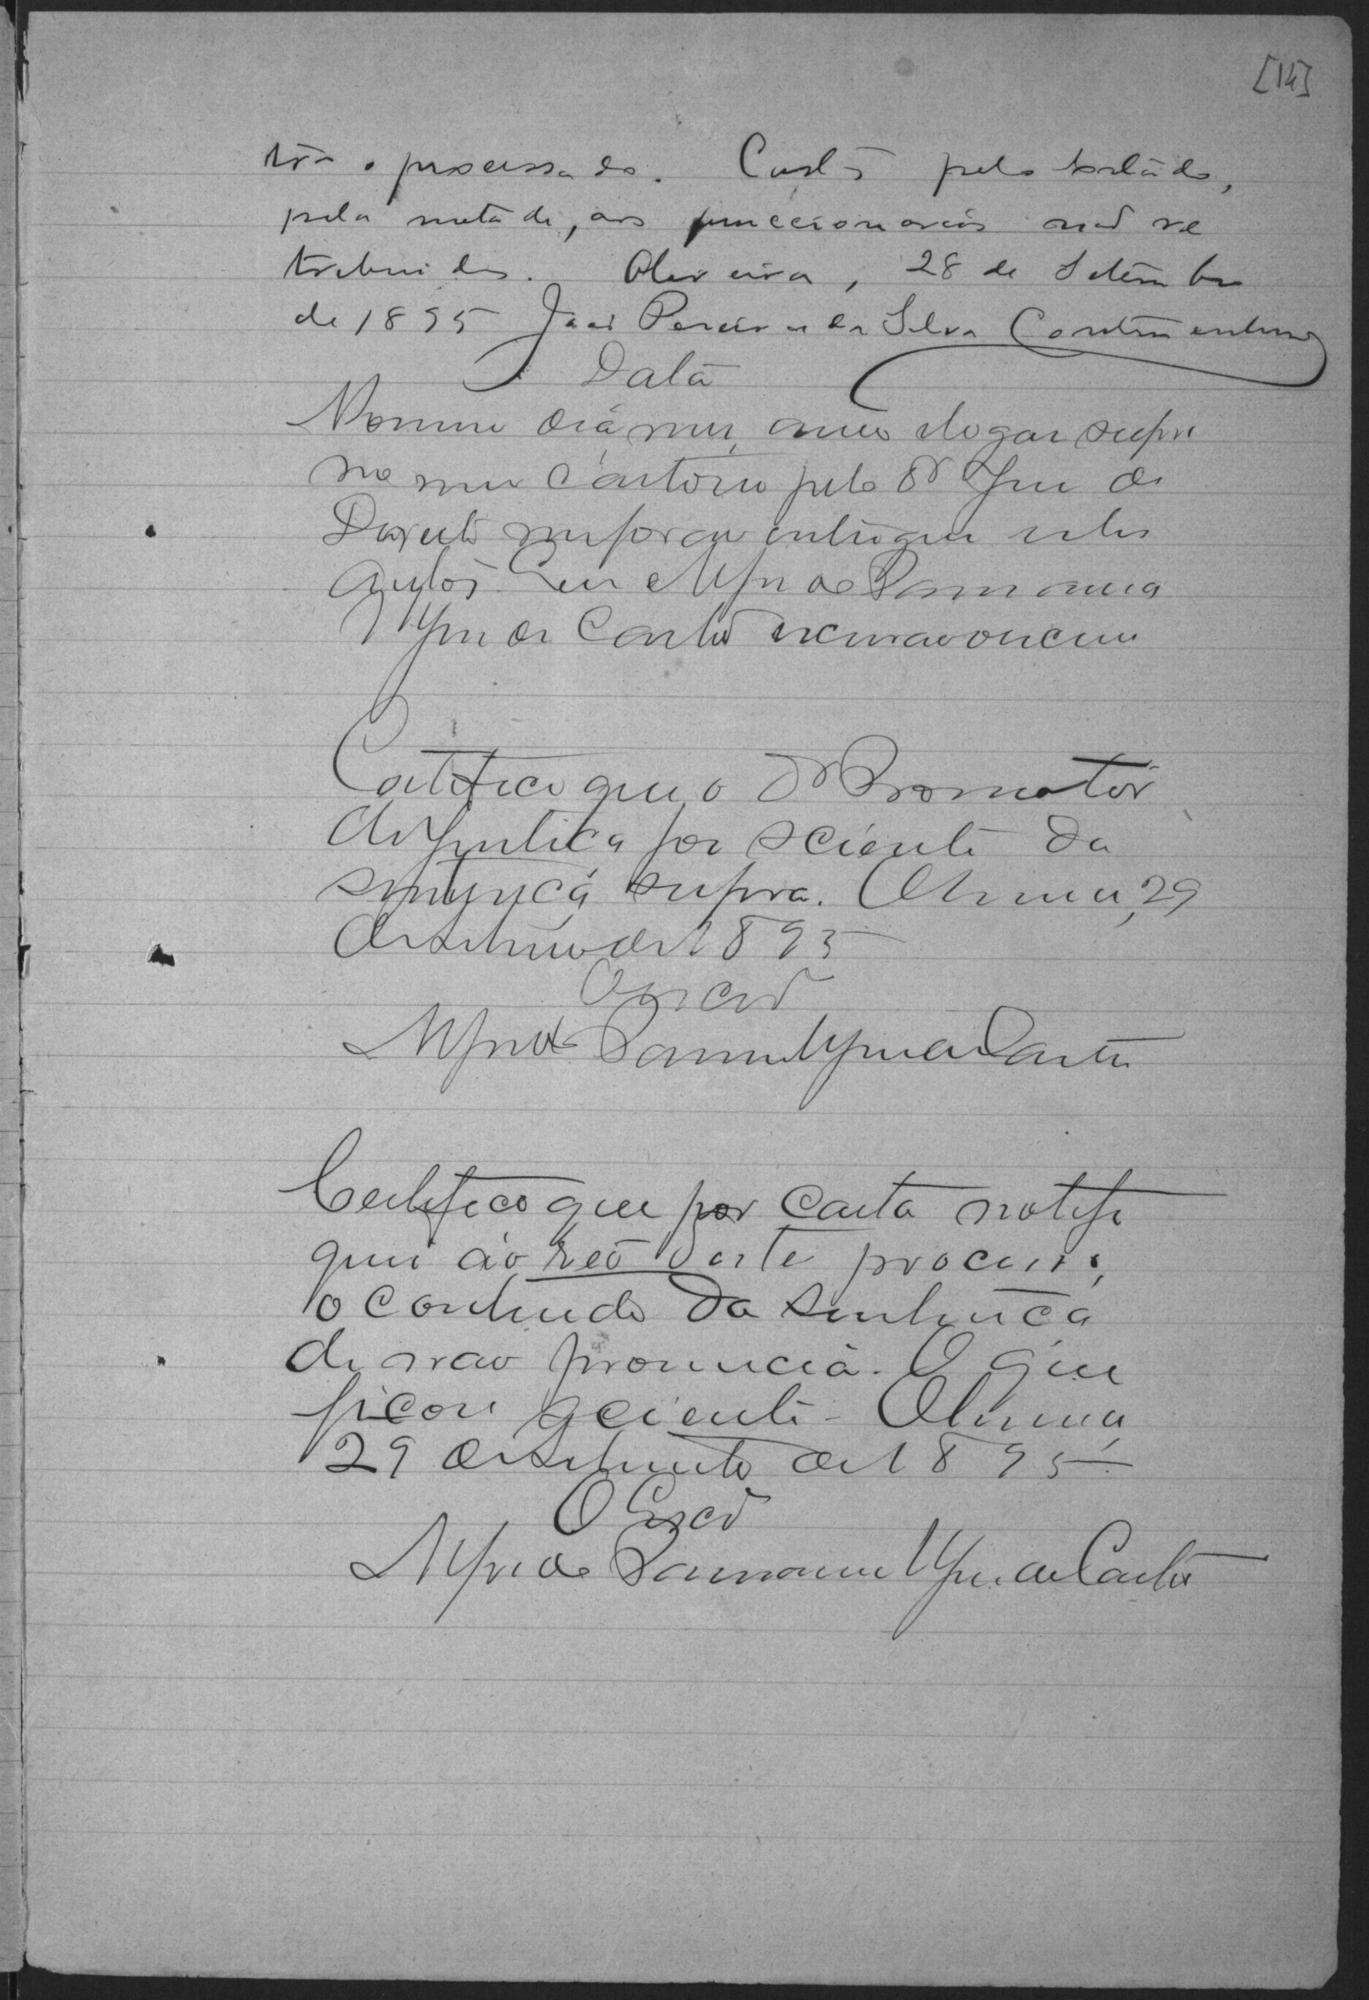 [14]
o processado. Custas pelo Estado,
pela metade, aos funccionarios não re
tribuidos. Oliveira, 28 de Setembro
de 1895 João Pereira da Silva Continentino
Data
No mesmo dia, mes, anno e logar supra
no meu cartorio pelo Dr Juiz de
Direito me foram entregues estes
autos. Eu Alfredo
de Castro escrivão escrevi
Certifico que o Dr Promotor
de Justiça foi sciente da
sentença supra. Oliveira, 29
de Setembro de 1895
O Escrivão
Alfredo de Castro
Certifico que por carta notifi
quei ao reo deste processo,
o contheudo da sentença
de não pronuncia. O que
ficou sciente. Oliveira,
29 de Setembro de 1895.
O Escrivão
Alfredo de Castro